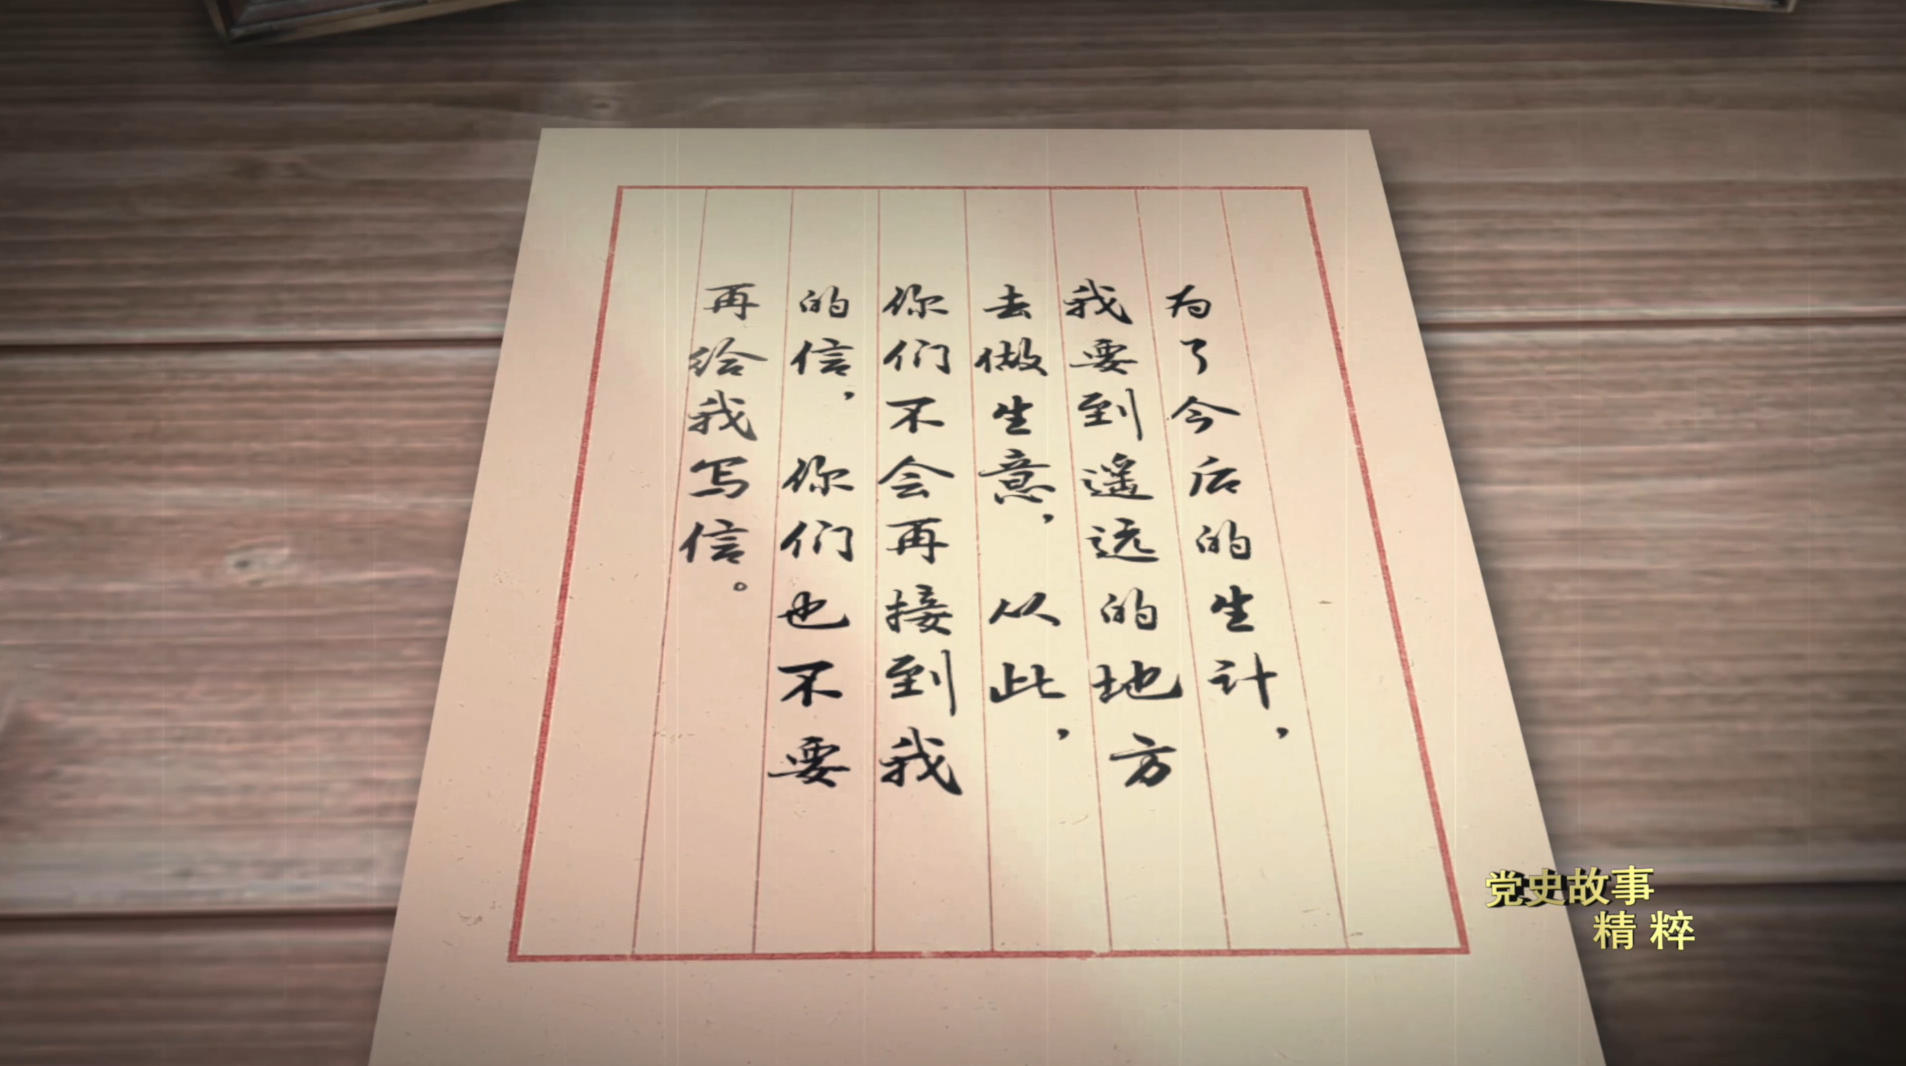 为了今后的生计，
我要到遥远的地方
去做生意，从此，
你们不会再接到我
的信，你们也不要
再给我写信。
党史故事
精粹